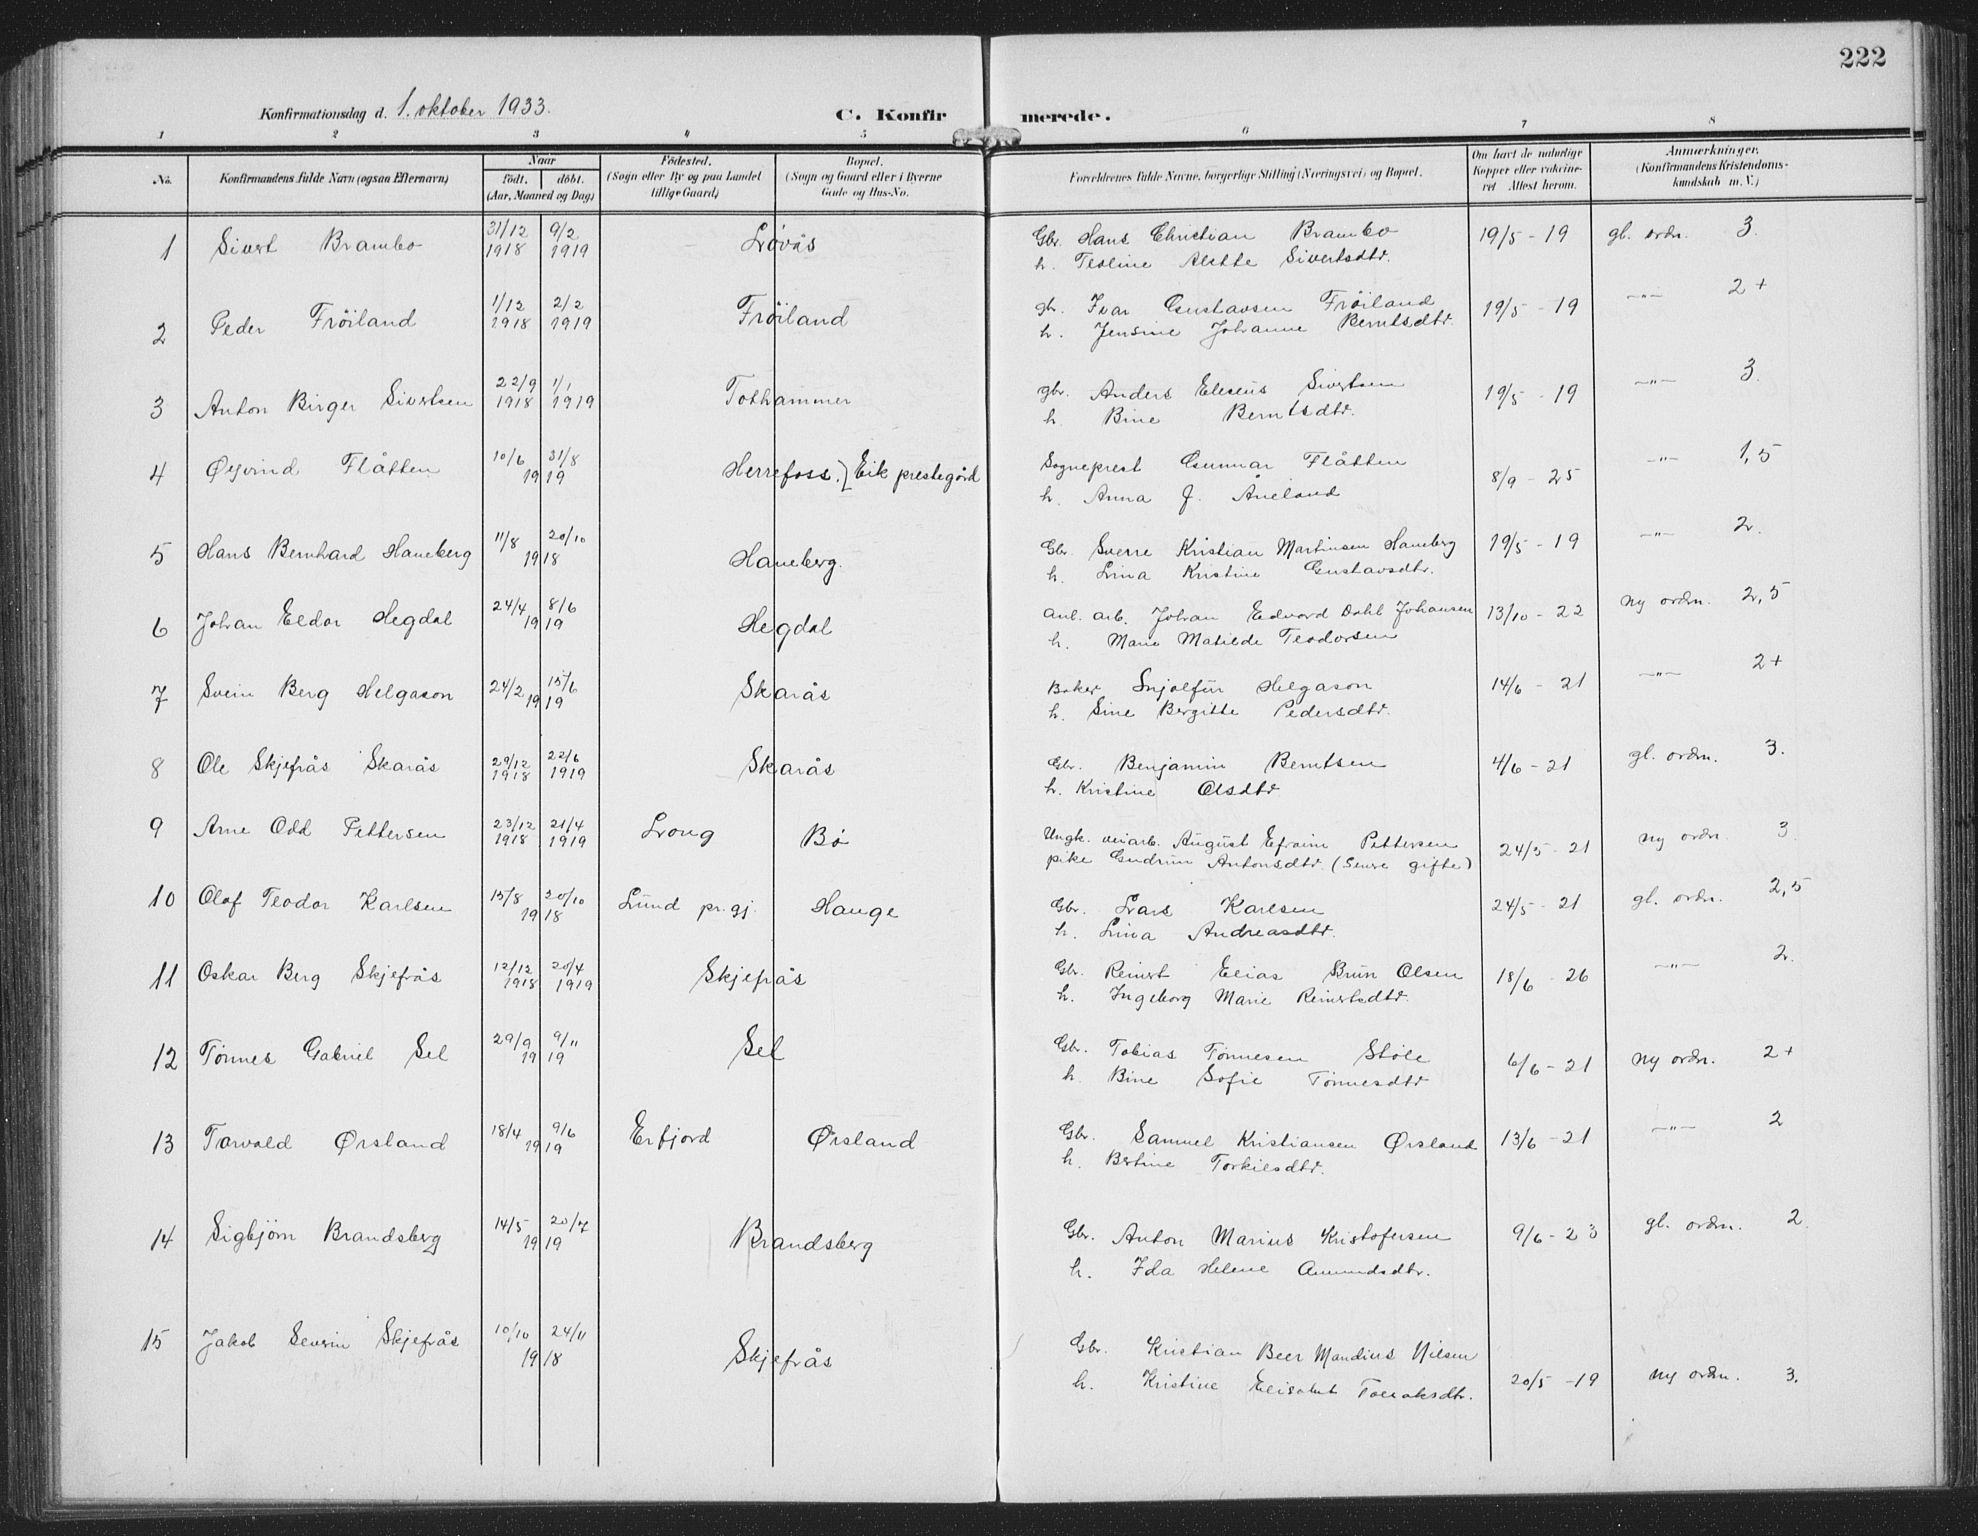 222
Konfirmationsdag d. 1. oktober 1933.
C. Konfirmerede.
1 2 3 4 5 6 7 8
No.
Konfirmandens fulde Navn (ogsaa Efternavn)
Naar
født. døbt.
(Aar, Maaned og Dag)
Fødested.
(Sogn eller By og paa Landet
tillige Gaard)
Bopæl.
(Sogn og Gaard eller i Byerne
Gade og Hus-No.
Forældrenes fulde Navne, borgerlige Stilling (Næringsvei) og Bopæl.
Om havt de naturlige
Kopper eller vaccine-
ret Attest herom.
Anmærkninger.
(Konfirmandens Kristendoms-
kundskab m. V.)
1 Sivert Brambo 31/12 1918 9/2 1919 Løvås Gbr. Hans Christian Brambo 19/5 - 19 gl. ordn. 3.
h. Teoline Alette Sivertsdtr.
2 Peder Frøiland 1/12 1918 2/2 1919 Frøiland gb. Ivar Gustavsen Frøiland 19/5 - 19 -"- 2+
h. Jensine Johanne Berntsdtr.
3 Anton Birger Sivertsen 22/9 1918 1/1 1919 Tothammer gbr. Anders Eleseus Sivertsen 19/5 - 19 -"- 3.
h. Bine Berntsdtr.
4 Øyvind Flåtten 10/6 31/8 1919 Herrefoss.) Eik prestegård Sogneprest Gunnar Flåtten 8/9 - 25 -"- 1,5
h. Anna J. Åneland
5 Hans Bernhard Haneberg 11/8 20/10 1918 Haneberg. Gbr. Sverre Kristian Martinsen Haneberg 19/5 - 19 -"- 2.
h. Lina Kristine Gustavsdtr.
6 Johan Eldar Hegdal 24/4 8/6 1919 Hegdal anl. arb. Johan Edvard Dahl Johansen 13/10 - 22 ny ordn. 2,5
h. Marie Matilde Teodorsen
7 Svein Berg Helgason 24/2 15/6 1919 Skarås Baker Snjolfur Helgason 14/6 - 21 -"- 2+
h. Sine Bergitte Pedersdtr.
8 Ole Skjefrås Skarås 29/12 1918 22/6 1919 Skarås Gbr. Benjamin Berntsen 4/6 - 21 gl. ordn. 3.
h. Kristine Olsdtr
9 Arne Odd Pettersen 23/12 1918 21/4 1919 Lrong Bø Ungk. veiarb. August Efraim Pettersen 24/5 - 21 ny ordn. 3
pike Gudrun Antonsdtr. (Senre gifte)
10 Olaf Teodor Karlsen 15/8 20/10 1918 Lund pr.gj. Hauge Gbr. Lars Karlsen 24/5 - 21 gl. ordn. 2,5
h. Lina Andreasdtr.
11 Oskar Berg Skjefrås 12/12 1918 20/4 1919 Skjefrås Gbr. Reinert Elias Brun Olsen 18/6 - 26 -"- 2.
h. Ingeborg Marie Reinertsdtr.
12 Tønnes Gabriel Sel 29/9 9/11 1919 Sel Gbr. Tobias Tønnesen Støle 6/6 - 21 ny ordn. 2+
h. Bine Sofie Tønnesdtr
13 Torvald Ørsland 18/4 9/6 1919 Erfjord Ørsland Gbr. Samuel Kristiansen Ørsland 13/6 - 21 -"- 2
h. Bertine Torkilsdtr.
14 Sigbjørn Brandsberg 14/5 20/7 1919 Brandsberg Gbr. Anton Marius Kristofersen 9/6 - 23 gl. ordn. 2.
h. Ida Helene Amundsdtr.
15 Jakob Severin Skjefrås 10/10 24/11 1918 Skjefrås Gbr. Kristian Beer Mandius Nilsen 20/5 - 19 ny ordn. 3.
h. Kristine Elisabet